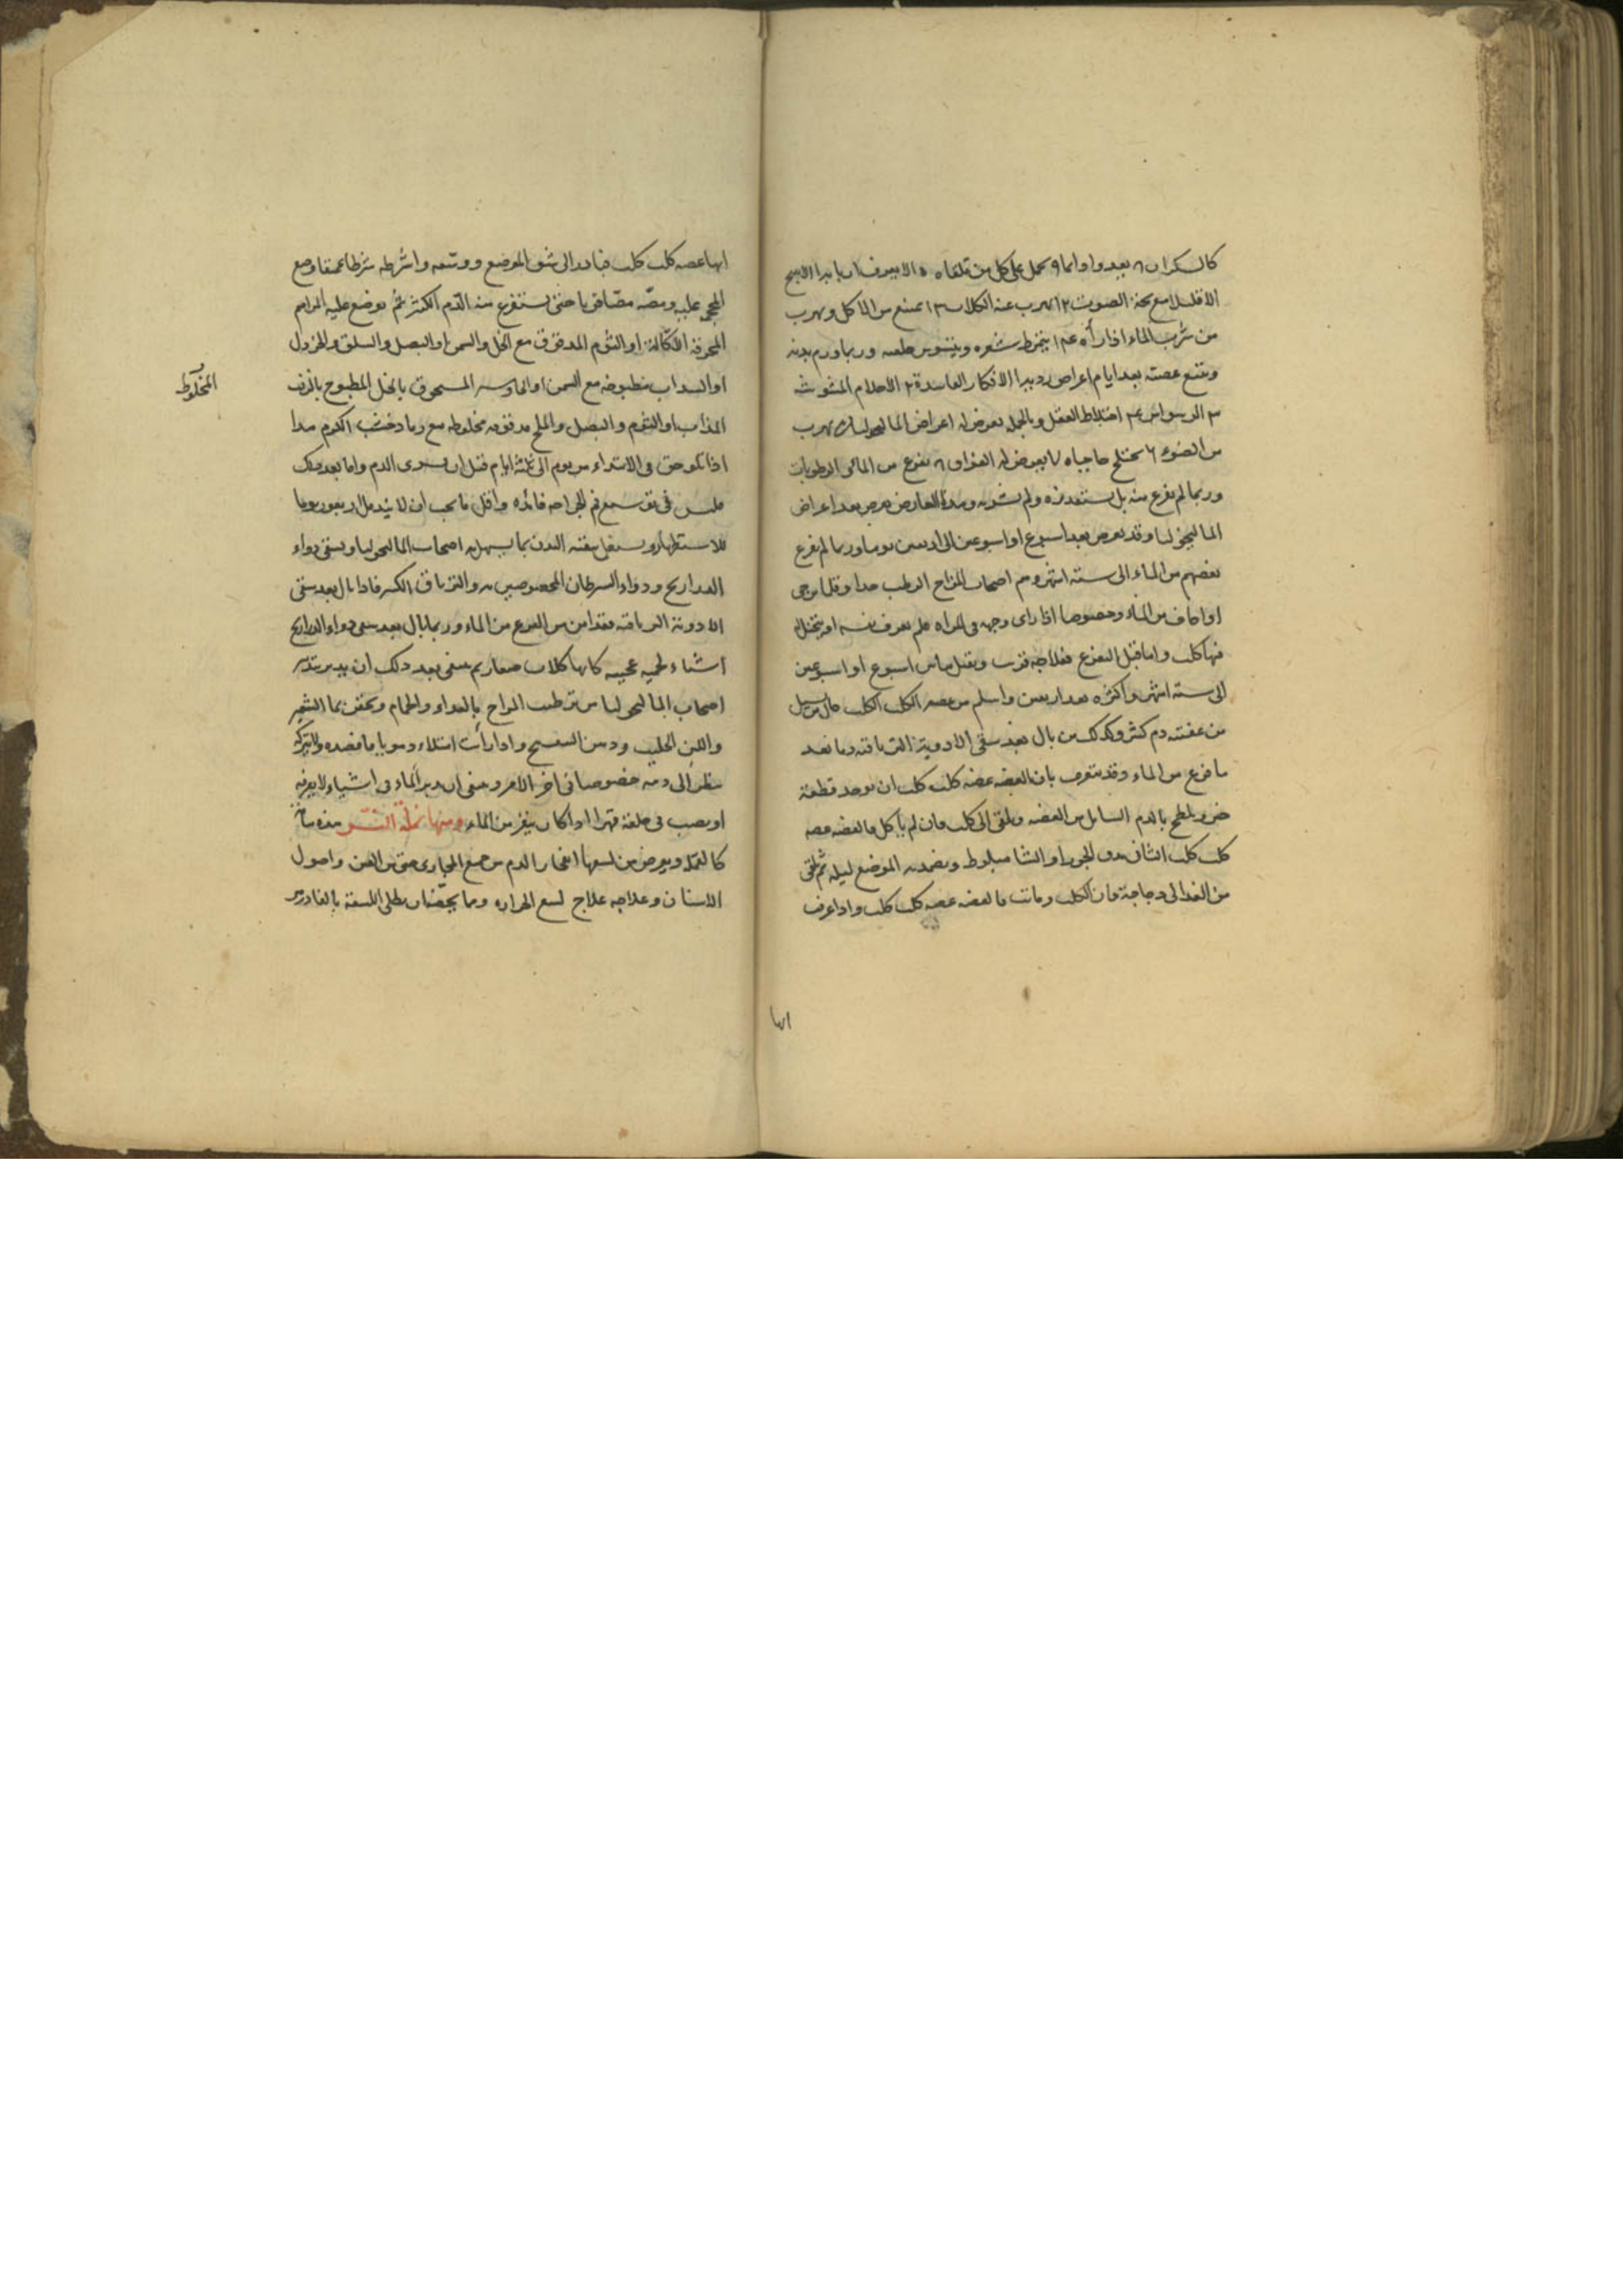 كالسكران ٨ يعدو دائما ٩ يحمل على كل من تلقاه الا يعرف اربابه ١١ لا ينبح
الا قليلا مع بحة الصوت ١٢ يهرب عنه الكلاب ١٣ يمتنع من الماكل ويهرب
من شرب الماء اذا رأه ١٤ يتمرط شعره ويتشوس طعمه وربما ورم بدنه
ويتبع عضته بعد ايام اعراض رديه ١ الافكار الفاسدة ٢ الاحلام المشوشه
٣ الوسواس ٤ اختلاط العقل وبالجمله يعرض له اعراض الماليخوليا ٥ يهرب
من الضوء ٦ يختلج حاجباه ٧ يعرض له الفواق ٨ يفزع من الماء والرطوبات
وربما لم يفزع منه بل يستقذره ولم يشربه وهذا العارض يعرض بعد اعراض
الماليخوليا وقد يعرض بعد اسبوع او اسبوعين الى اربعين يوما وربما لم يفزع
بعضهم من الماء الى ستة اشهر وهم اصحاب المزاج الرطب جدا وقلما يرجى
اذا خاف من الماء وخصوصا اذا راى وجهه في المراه فلم يعرف نفسه او يتخيل
فيها كلب واما قبل الفزع فعلاجه قريب ويقتل ما بين اسبوع او اسبوعين
الى ستة اشهر واكثره بعد اربعين واسلم من عضه الكلب الكلب حال من يسيل
من عضته دم كثير وكذلك من بال بعد سقى الادوية الترياقيه دما بعد
ما فزع من الماء وقد يتعرف بان العضه عضه كلب كلب ان يوجد قطعة
خبز ويلطخ بالدم السايل من العضه ويلقى الى كلب فان لم ياكل فالعضه عضه
كلب كلب الثاني يدق الجوز او الشاه بلوط ويضمد به الموضع ليله ثم يلقى
من الغد الى دجاجة فان اكلت وماتت فالعضه عضه كلب كلب واذا عرف
انها
انها عضه كلب كلب فبادر الى شق الموضع ووسعه واشرطه شرطا عميقا وضع
المحجمه عليه ومصه مصا قويا حتى يستفرغ منه الدم الكثير ثم يوضع عليه المراهم
المحرقة الاكالة او الثوم المدقوق مع الخل والسمن او البصل والسلق والخردل
او السداب مطبوخه مع السمن او الجاوشير المسحوق بالخل المطبوخ بالزفت
المخلوط
المذاب او الثوم والبصل والملح مدقوقه مخلوطه مع رماد خشب الكرم هذا
اذا تلوحق في الابتداء من يوم الى ثلثة ايام قبل ان يسرى الدم واما بعد ذلك
فليس في توسيع فم الجراحه فائده واقل ما يجب ان لا يندمل اربعون يوما
للاستظهار ويستعمل تنقيه البدن بما يسهل به اصحاب الماليخوليا ويسقى دواء
الدراريح ودواء السرطان المخصوصين به والترياق الكبير فاذا بال بعد سقى
الادوية الترياقيه فقد امن من الفزع من الماء وربما بال بعد سقى دواء الدراريح
اشياء لحميه عجيبه كانها كلاب صغار ثم ينبغى بعد ذلك ان يدبر بتدبير
اصحاب الماليخوليا من ترطيب المزاج بالغداء والحمام ويحقن بماء الشعير
واللبن الحليب ودهن البنفسج واذا رأيت امتلاء دمويا فافصده ولا تتركه
ينظر الى دمه خصوصا في اخر الامر وينبغى ان يدبر الماء في اشياء لا يعرفه
او يصب في حلقه قهرا اذا كان يفزع من الماء ومنها نملة النسر
كالقمله ويعرض من لسعها انفجار الدم من جميع المجارى حتى من العين واصول
الاسنان وعلاجه علاج لسع الجراره ومما يخصه ان يطلى اللسعة بالفادزهر